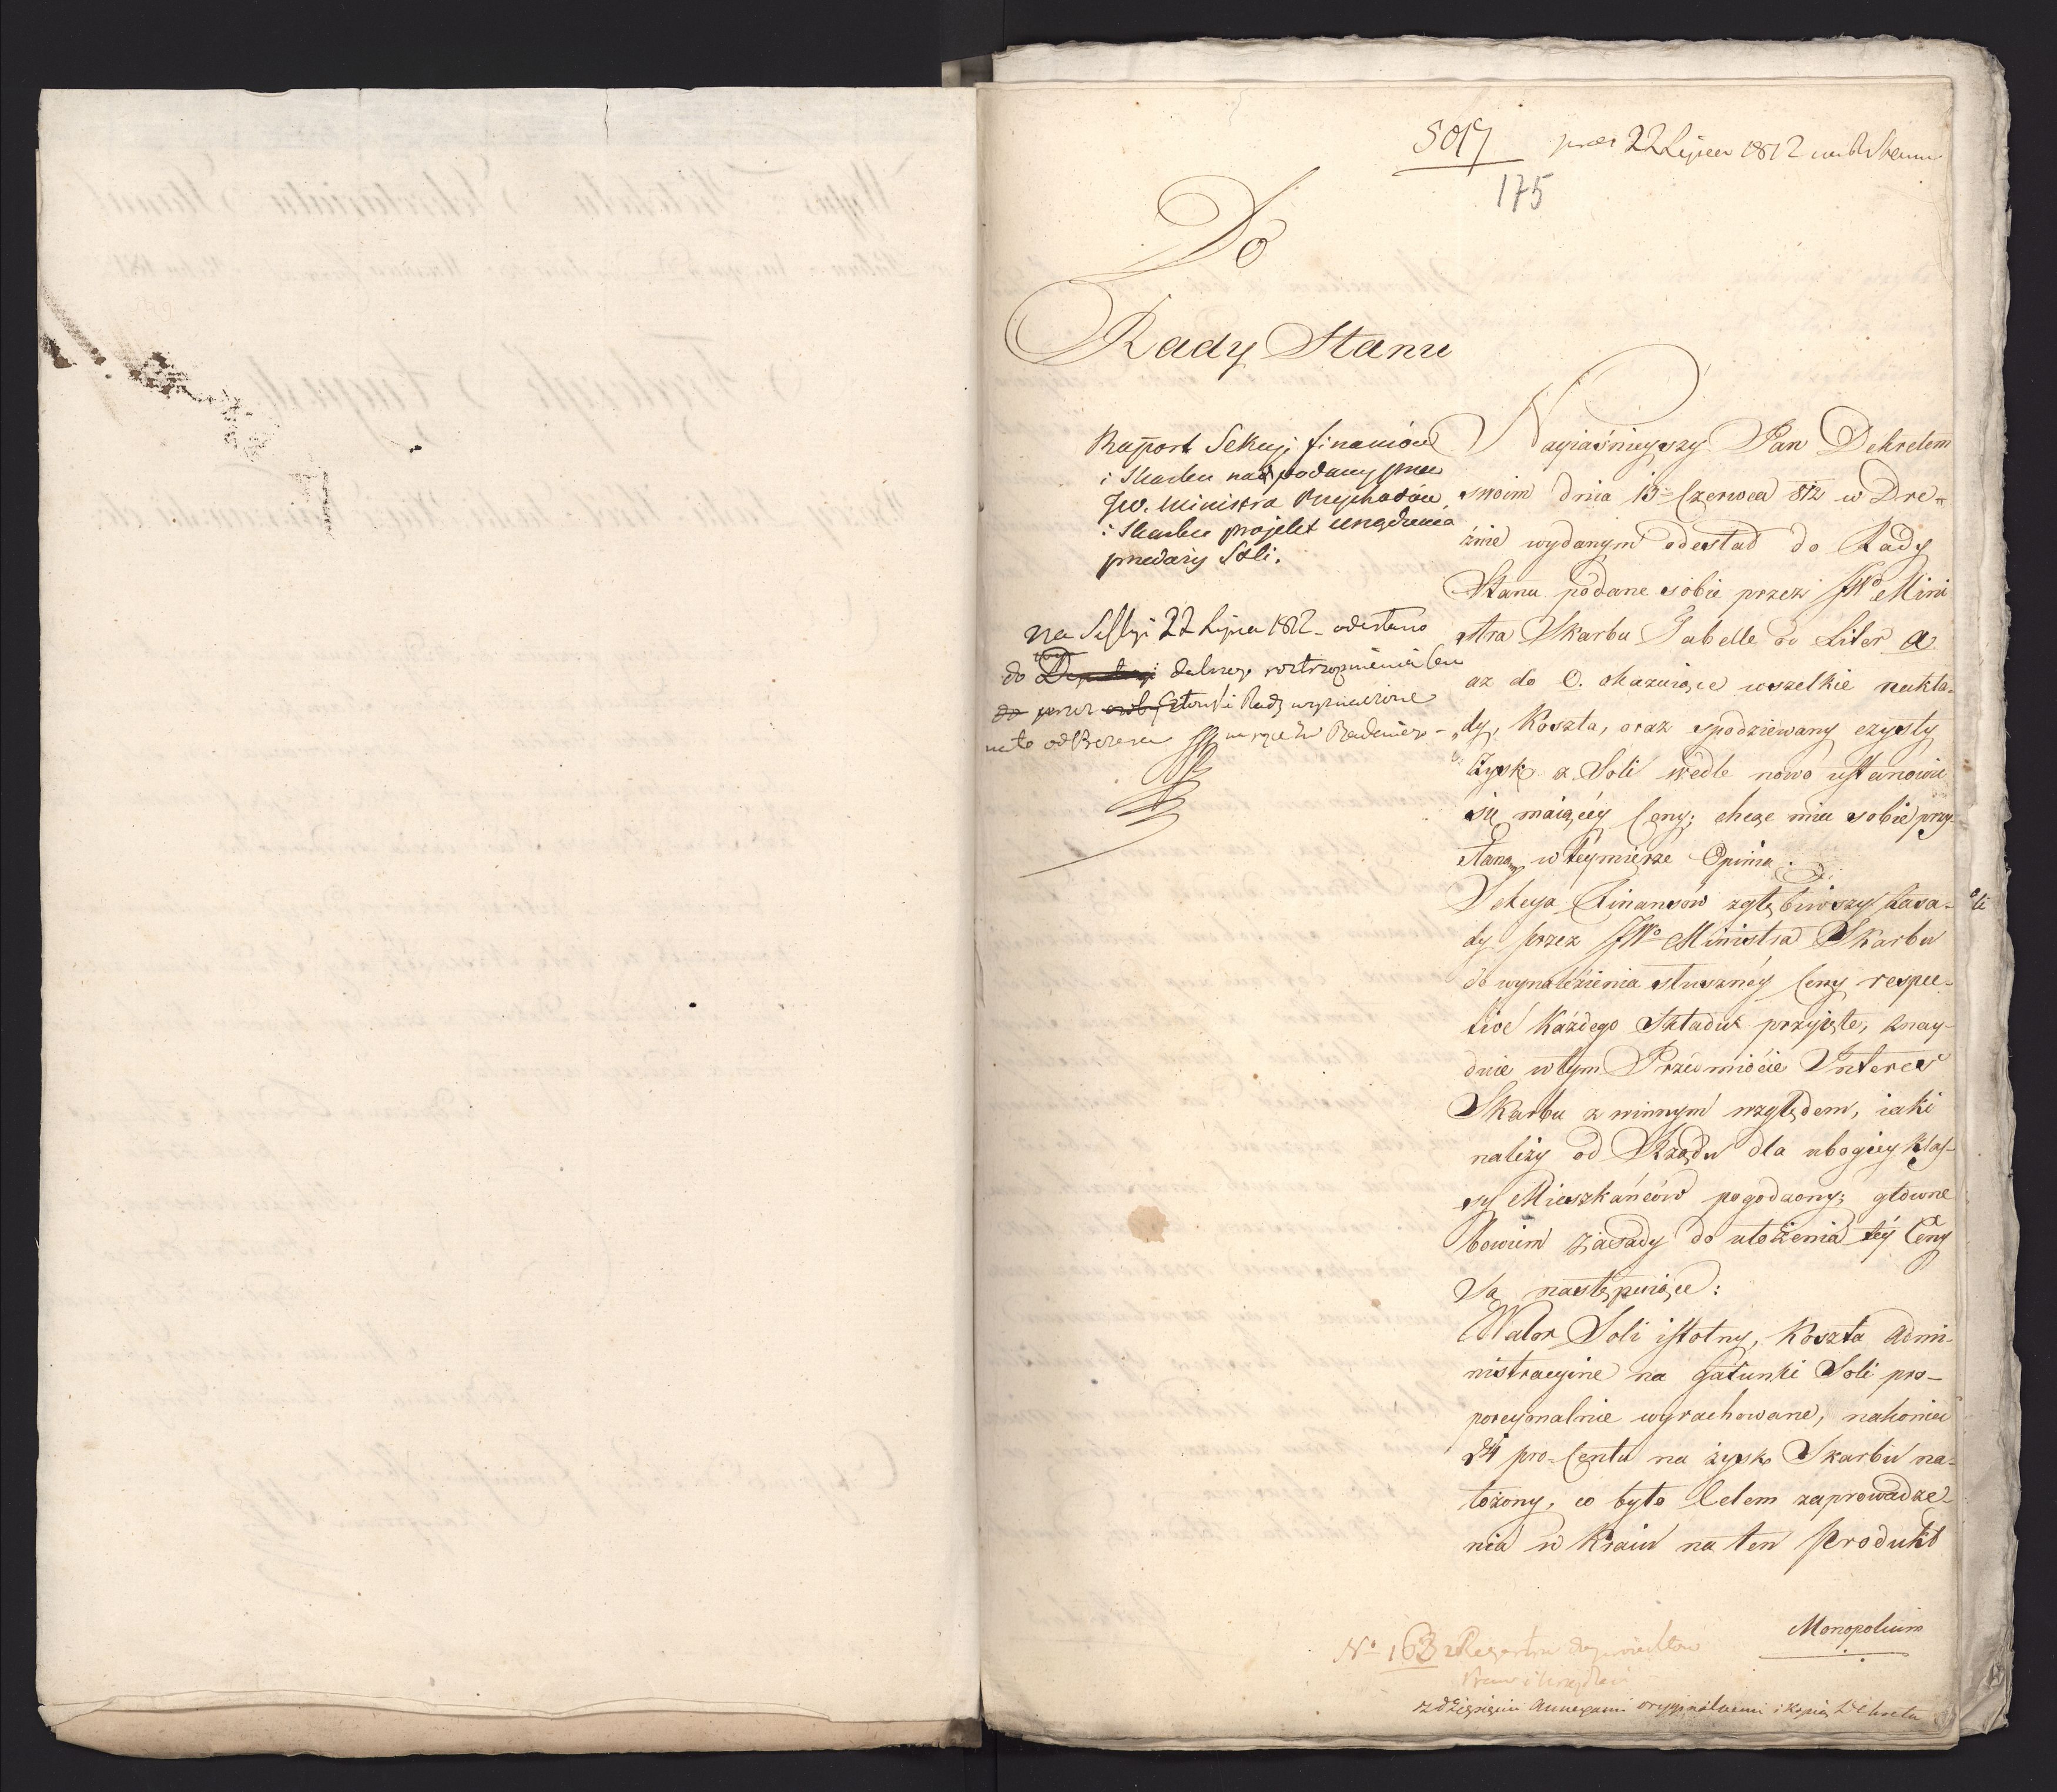 5017
22 Lipca 1812
175
Do
Rady Stanu
Raport Sekcyi finansów
i Skarbu nad podany przez
JW. Ministra Przychodów
i Skarbu projekt urządzenia
przedaży Soli.
na Sessyi 22 Lipca 1812 odesłano
do dalszego roztrząśnienia
przez Członki Rady wyznaczone
Nayiaśnieyszy Pan Dekretem
swoim dnia 13 Czerwca 812 w Dre-
źnie wydanym odesłał do Rady
Stanu podane sobie przez JWo Mini
stra Skarbu Tabelle od Liter a
aż do O. okazuiące wszelkie nakła-
dy, Koszta, oraz spodziewany czysty
Zysk z Soli wedle nowo ustanowić
się maiącéy Ceny; chcąc mieć sobie przy-
słaną w téymierze Opinią.
Sekcya Finansów zgłębiwszy Zasa-
dy przez JWo Ministra Skarbu
do wynaleźienia słusznéy Ceny respec-
tivè Każdego Składu przyięte, znay-
duie wtym Przedmiocie Interes
Skarbu z winnym względem, iaki
należy od Rządu dla ubogiey klas-
sy Mieszkańców pogodzony; główne
bowiem zasady do ułożenia téy Ceny
Są następuiące:
Walor Soli istotny, Koszta Admi-
nistracyine na gatunki Soli pro-
porcyonalnie wyrachowane, nakoniec
24 pro-Centu na zysk Skarbu na-
łożony, co było Celem zaprowadze-
nia w Kraiu na ten Produkt
Monopolium
No 163 z Regestru
z dziesięciu Annexami oryginalnemi i kopią Dekretu